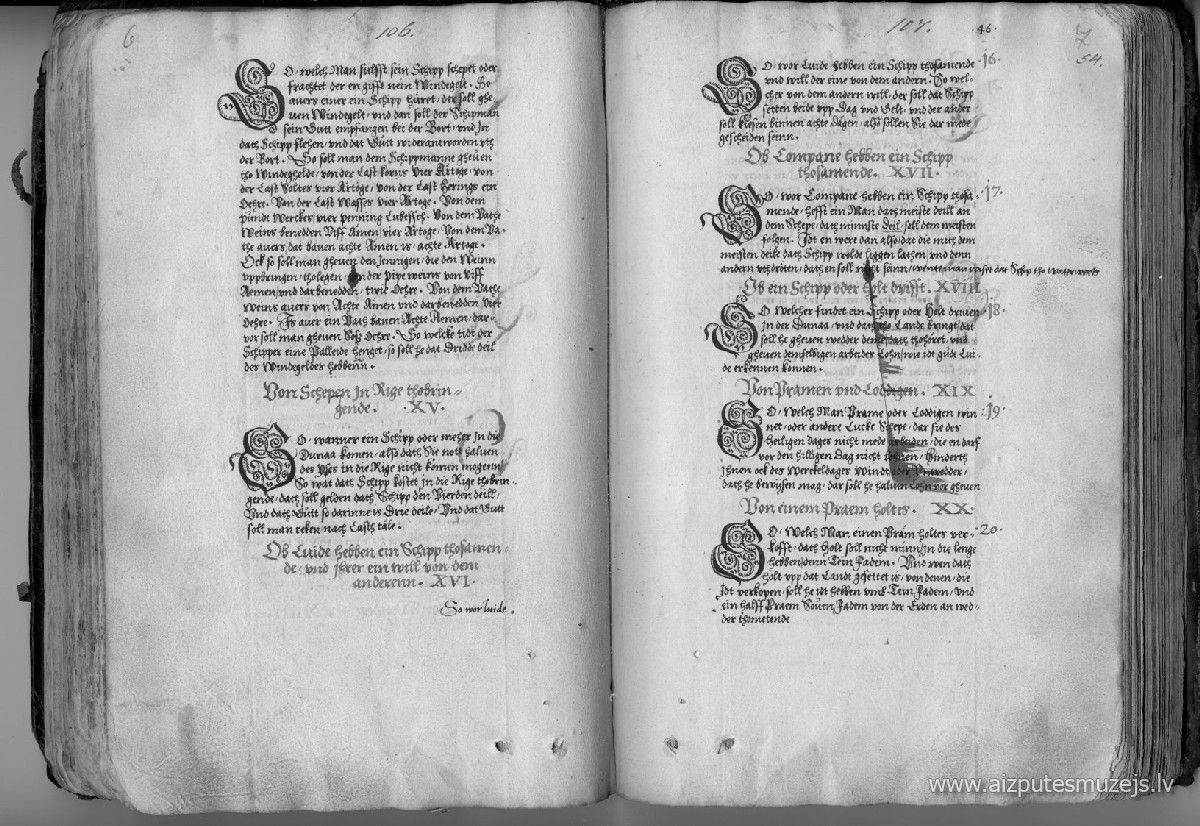 6
106.
So welch Man sulffst sein Schipp schepet oder
frachtet der en gifft nein Windegelt. So
auers einer ein Schipp huret, der soll ghe
uen Windegelt, vnd dan soll der Schipman
sein Gutt empfangen bei der Bort, vnd In
dath Schipp flehen, vnd dat Gutt wideranworden vth
der Bort. So soll man dem Schippmanne gheuen
tho Windegelde, von der Last korns vier Artoge, von
der Last Soltes vier Artoge, von der Last Herings ein
Oehre. Von der Last Wasses vier Artoge. Von dem
pundt Werckes vier penning Lubessch. Von dem Vathe
Weins benedden Viff Amen, vier Artoge. Von dem Va-
the auers, dat bauen achte Amen is, achte Artoge.
Ock so soll man gheuen den Jennigen, die den Weinn
vppbringen, tholegen, von der pipe weins von viff
Aemen, vnd darbenedden, twie Oehre. Von dem Vathe
Weins auers von Achte Amen vnd darbenedden vier
Oehre. Is auer ein Vath bauen Achte Aemen, dar-
vor soll man gheuen Soß Oehre. So welcke tidt der
Schipper eine Palleide henget, so soll he dat Dridde deil
der Windegeldes hebbenn.
Von Schepen In Rige thobrin-
gende. XV.
So wanner ein Schipp oder meher In die
Dunaa komen, also dath Sie noth haluen
des Ises in die Rige nicht komin mogenn
So wat dath Schipp kostet in die Rige thobrin-
gende, dath soll gelden dath Schipp den Vierden deill,
Vnd dath Gutt so darinne is Drie deile, Vnd dat Gutt
soll man reken nach Lasth tale.
Ob Luide hebben ein Schipp thosamen-
de, vnd Ihrer ein will von dem
anderenn. XVI.
So wor luide.
107.
46.
54.
16.
So wor Luide hebben ein Schipp thosamende
vnd will der eine von dem andern. So wel-
cher von dem andern will, der soll dat Schipp
setten beidt vpp Dag vnd Gelt, vnd der ander
soll kiesen binnen achte dagen, also sollen Sie dar mede
gescheiden seinn.
Ob Compane hebben ein Schipp
thosamende. XVII.
17.
So wor Compane hebben ein Schipp thosa-
mende, hefft ein Man dath meiste deill an
dem Schepe, dath minnste deil, soll dem meisten
folgen. Idt en were dan also, dat die mith dem
meisten deile dath Schipp wolde liggen lathen, vnd denn
andern vehdriten, dath en soll nicht sinn,
Ob ein Schipp oder holt drifft. XVIII
18.
So Welcher findet ein Schipp oder Holt driuen
In der Dunaa, vnd dath tho Lande bringt, dat
soll he gheuen wedder deme dath thohöret, vnd
gheuen demselbigen arbeides Lohn, wie idt gude Lui-
de erkennen konnen.
Von Pramen vnd Loddigen. XIX
19.
So Welch Man Prame oder Loddigen win
net, oder andere Lutke Schepe, dar sie des
Heiligen dages nicht mede arbeiden, die en darf
vor den hilligen Dag nicht lohnen, Hinderth
Ihnen ock des Werckeldages Windt oder Vnwedder,
dath he bewisen mag, dar soll he haluen Lohn vor gheuen
Von einem Praem holtes. XX.
20.
So Welch Man einen Pram holtes ver-
kofft, dath Holt soll nicht minn In die lenge
hebben, denn Tein fadem. Vnd wan dath
holt vpp dat Landt gesettet is, von denen, die
Idt verkopen, soll he idt hebben vmb Tein fadem, vnd
ein halff Praem Souen fadem von der Erden an wed-
der thometende
www.aizputesmuzejs.lv